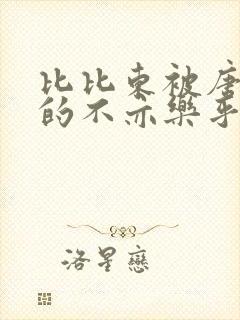 比比东被唐
的不亦樂乎
洛星戀